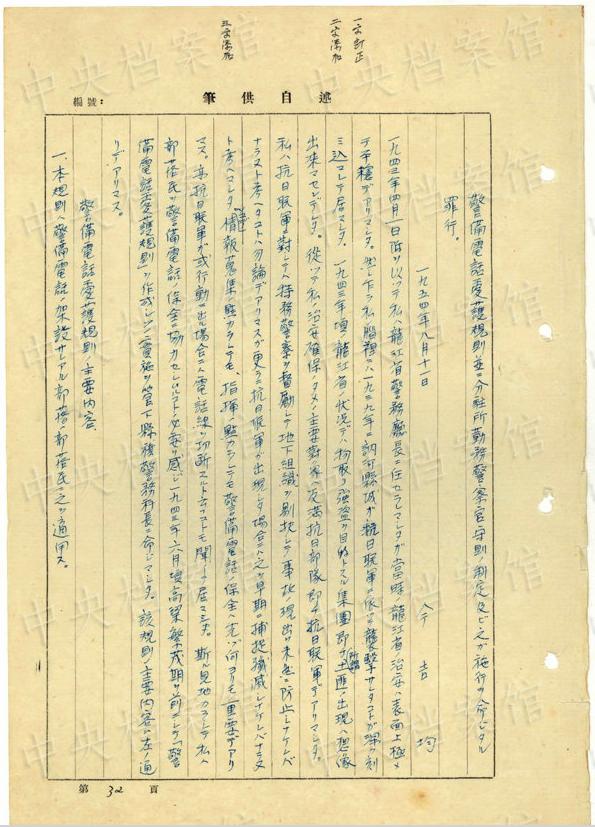 一字訂正
二字添加
三字添加
述自供筆
編號:
警備電話愛護規則並ニ分駐所勤務警察官守則ノ制定及ビ之ガ施行ヲ命ジタル
罪行。
一九五四年八月十一日
今吉均
一九四三年四月一日附ヲ以ッテ私ハ龍江省警務廳長ニ任セラレマシタガ當時龍江省ノ治安ハ表面上極メ
テ平穏デアリマシタ。然シ乍ラ私ノ腦裡ニハ一九三九年ニ訥河縣城ガ抗日聯軍ニ依ッテ襲撃サレタコトガ深ク刻
ミ込マレテ居マシタ。一九四三年頃ノ龍江省ノ状況デハ物取リ強盗ヲ目的トスル集團即チ所謂土匪ノ出現ハ想像
出来マセンデシタ。從ッテ私ノ治安確保ノタメノ主要對象ハ反満抗日部隊即チ抗日聯軍デアリマシタ。
私ハ抗日聯軍ニ對シテハ特務警察ヲ督勵シテ地下組織ヲ剔抉シテ事故ノ現出ヲ未然ニ防止シナケレバ
ナラヌト考ヘタコトハ勿論デアリマスガ更ニ抗日聯軍ガ出現シタ場合ニハ之ヲ早期ニ捕捉殲滅シナケレバナラヌ
ト考ヘマシタ。情報蒐集ノ點カラシテモ、指揮ノ點カラシテモ警備電話ノ保全ハ先ヅ何ヨリモ重要デアリ
マス。亦抗日聯軍ガ或行動ニ出ル場合ニハ電話線ヲ切断スルト云フコトモ聞イテ居マシタ。斯ル見地カラシテ私ハ
部落民ヲ警備電話ノ保全ニ協力セシムルコトノ必要ヲ感ジ一九四三年六月頃高粱繁茂期ヲ前ニシテ「警
備電話愛護規則」ヲ作成シテ之ガ實施ヲ管下縣旗警務科長ニ命ジマシタ。該規則ノ主要内容ハ左ノ通
リデアリマス。
警備電話愛護規則ノ主要内容
一、本規則ハ警備電話ノ架設サレアル部落ノ部落民ニ之ヲ適用ス。
第 32 頁
中央档案馆